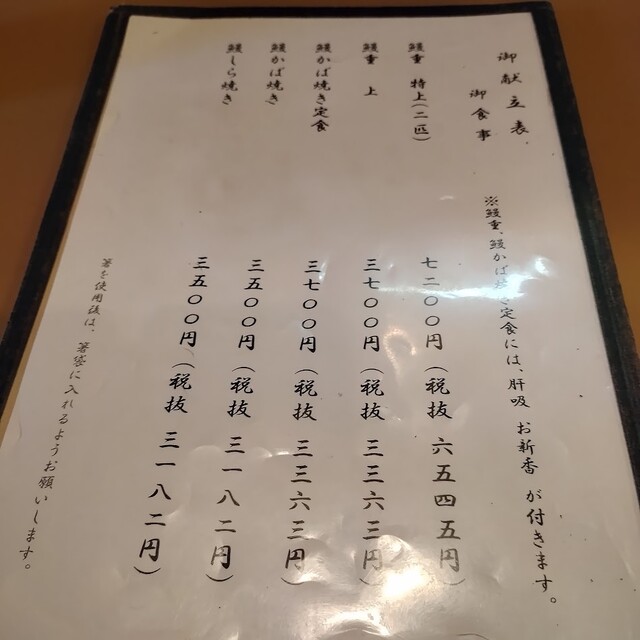 御献立表
御食事
※鰻重、鰻かば焼き定食には、肝吸 お新香 が付きます。
鰻重 特上(二匹) 七二〇〇円(税抜 六五四五円)
鰻重 上 三七〇〇円(税抜 三三六三円)
鰻かば焼き定食 三七〇〇円(税抜 三三六三円)
鰻かば焼き 三五〇〇円(税抜 三一八二円)
鰻しら焼き 三五〇〇円(税抜 三一八二円)
箸を使用後は、箸袋に入れるようお願いします。